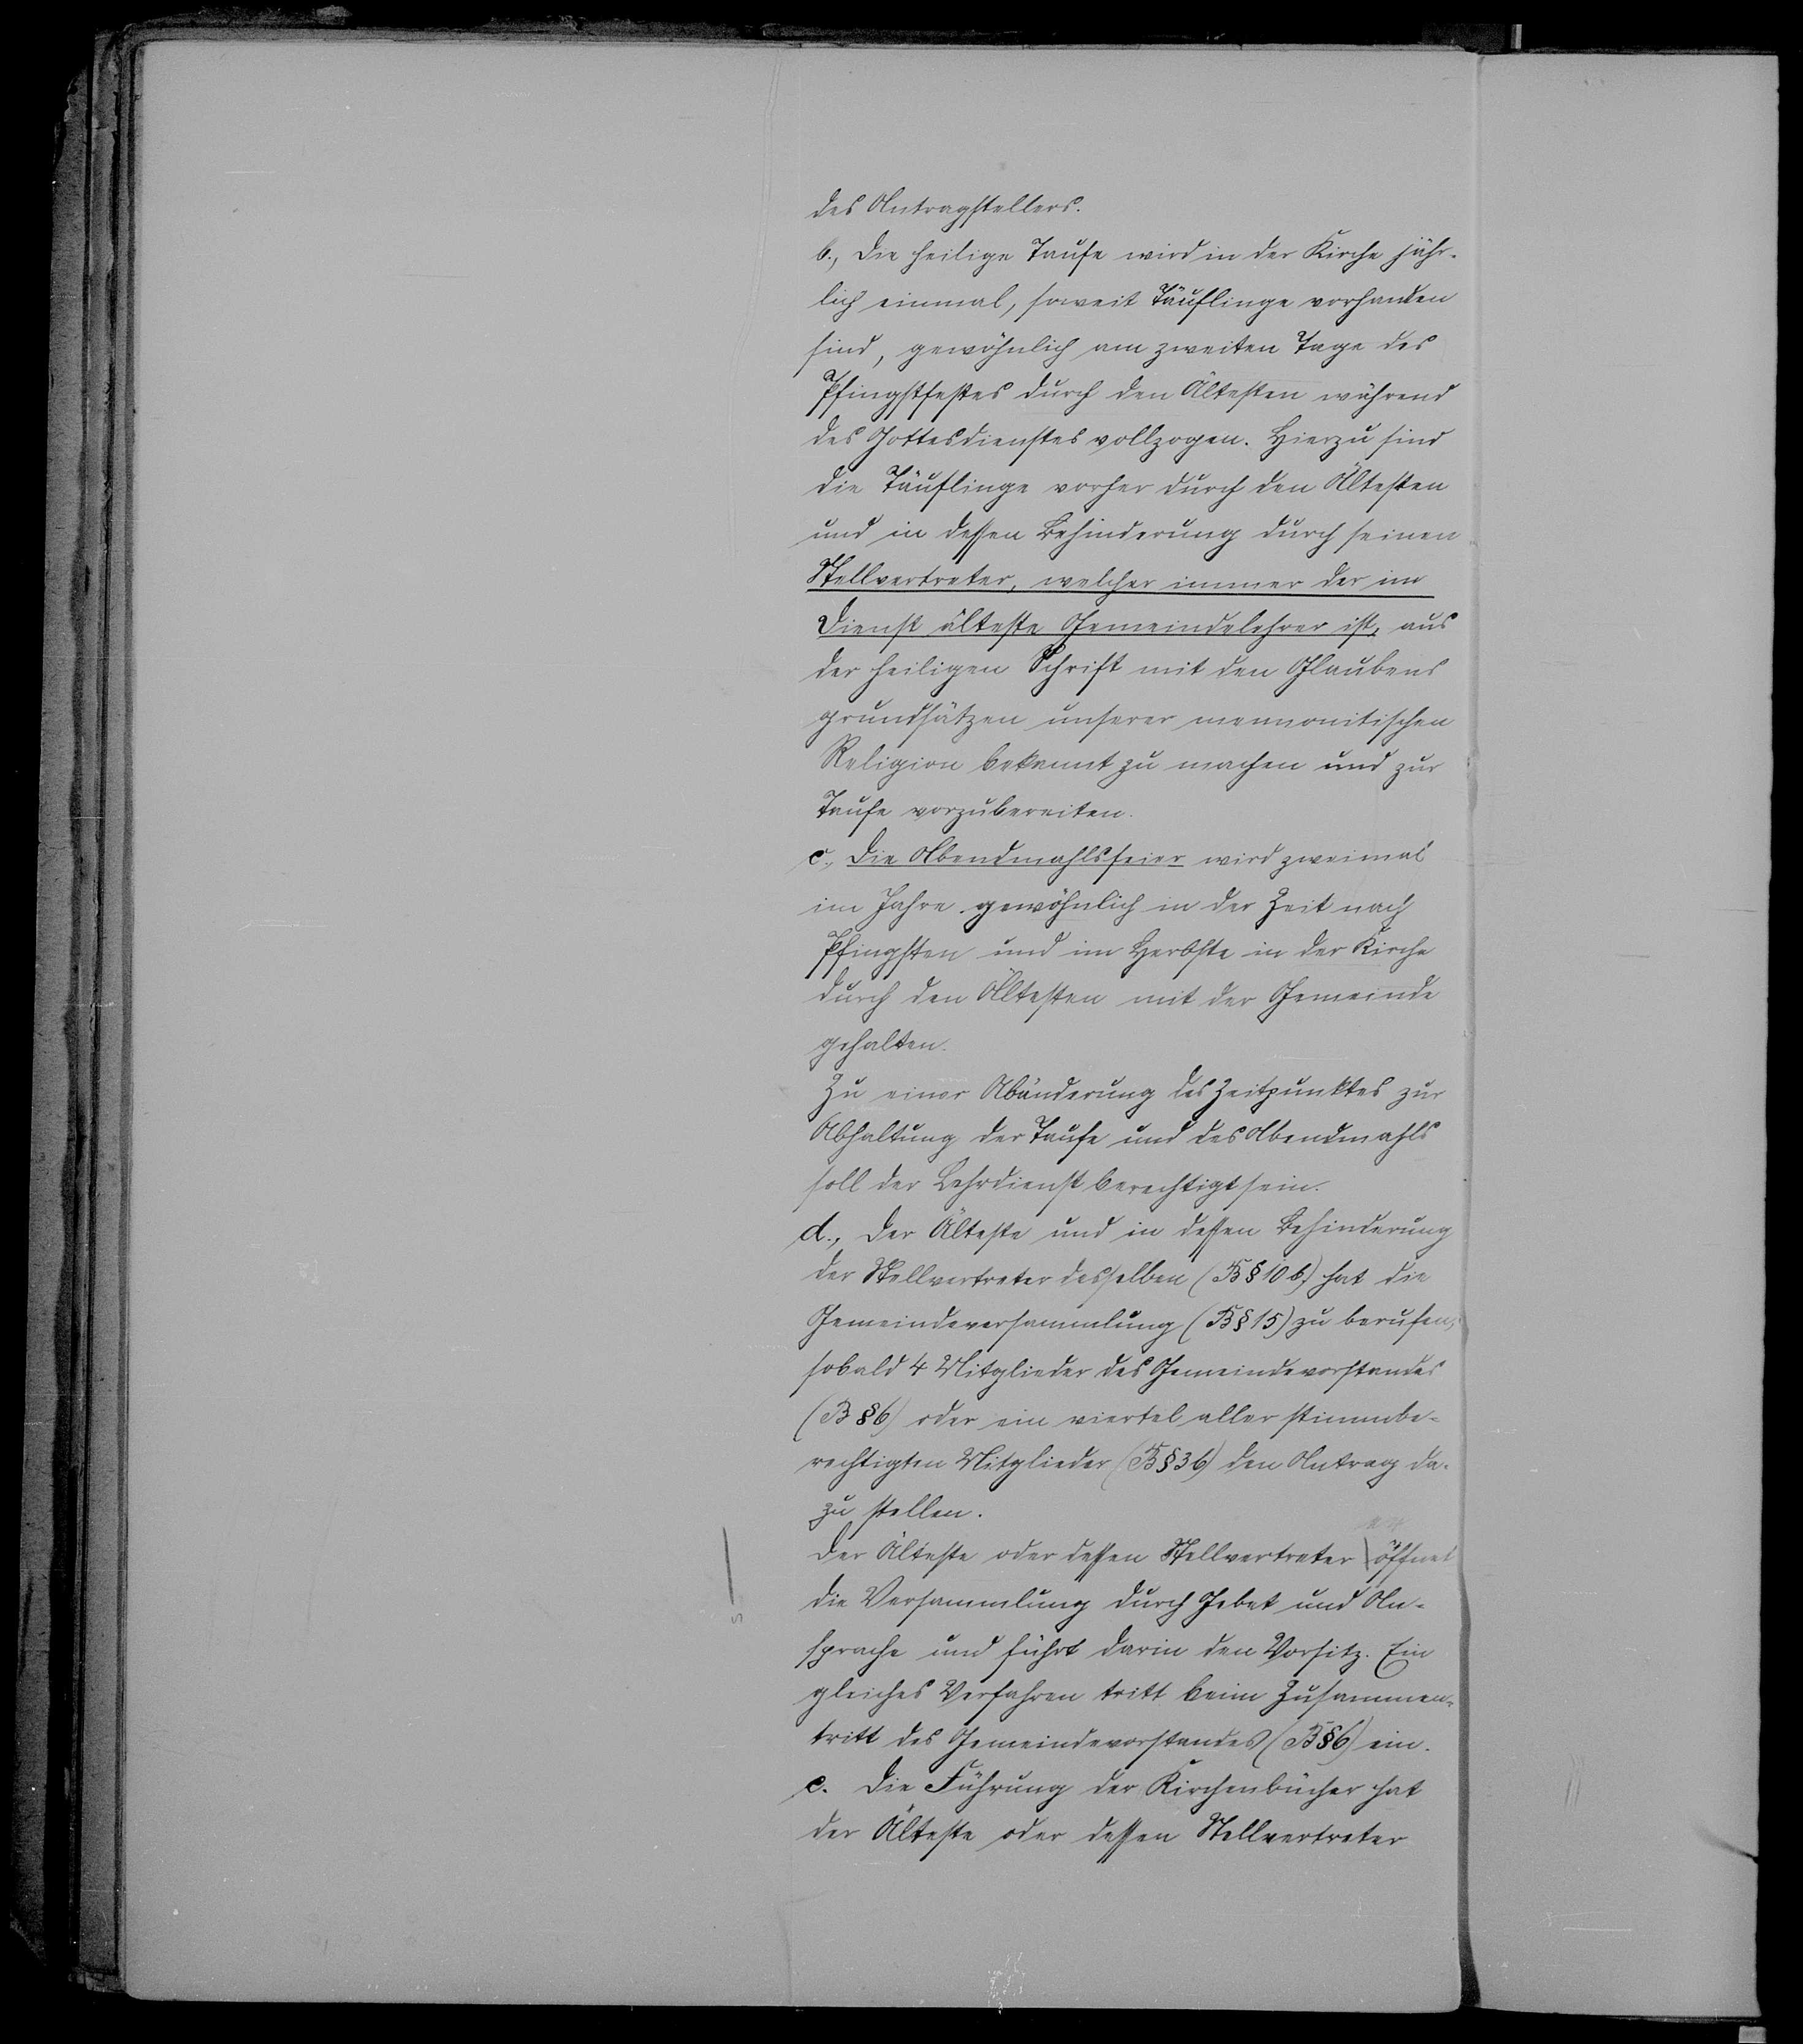 des Antragstellers.
b., Die heilige Taufe wird in der Kirche jähr-
lich einmal, soweit Täuflinge vorhanden
sind, gewöhnlich am zweiten Tage des
Pfingstfestes durch den Ältesten während
des Gottesdienstes vollzogen. Hierzu sind
die Täuflinge vorher durch den Ältesten
und in dessen Behinderung durch seinen
Stellvertreter, welcher immer der im
Dienst älteste Gemeindelehrer ist, aus
der heiligen Schrift mit den Glaubens
grundsätzen unserer mennonitischen
Religion bekannt zu machen und zur
Taufe vorzubereiten.
c., Die Abendmahlsfeier wird zweimal
im Jahre gewöhnlich in der Zeit nach
Pfingsten und im Herbste in der Kirche
durch den Ältesten mit der Gemeinde
gehalten.
Zu einer Abänderung des Zeitpunktes zur
Abhaltung der Taufe und des Abendmahls
soll der Lehrdienst berechtigt sein.
d., Der Älteste und in dessen Behinderung
der Stellvertreter desselben (B § 10 b) hat die
Gemeindeversammlung (B § 15) zu berufen,
sobald 4 Mitglieder des Gemeindevorstandes
(B § 6) oder ein viertel aller stimmbe-
rechtigten Mitglieder (B § 36) den Antrag da-
zu stellen.
Der Älteste oder dessen Stellvertreter öffnet
die Versammlung durch Gebet und An-
sprache und führt darin den Vorsitz. Ein
gleiches Verfahren tritt beim Zusammen-
tritt des Gemeindevorstandes (B § 6) ein.
e. Die Führung der Kirchenbücher hat
der Älteste oder dessen Stellvertreter